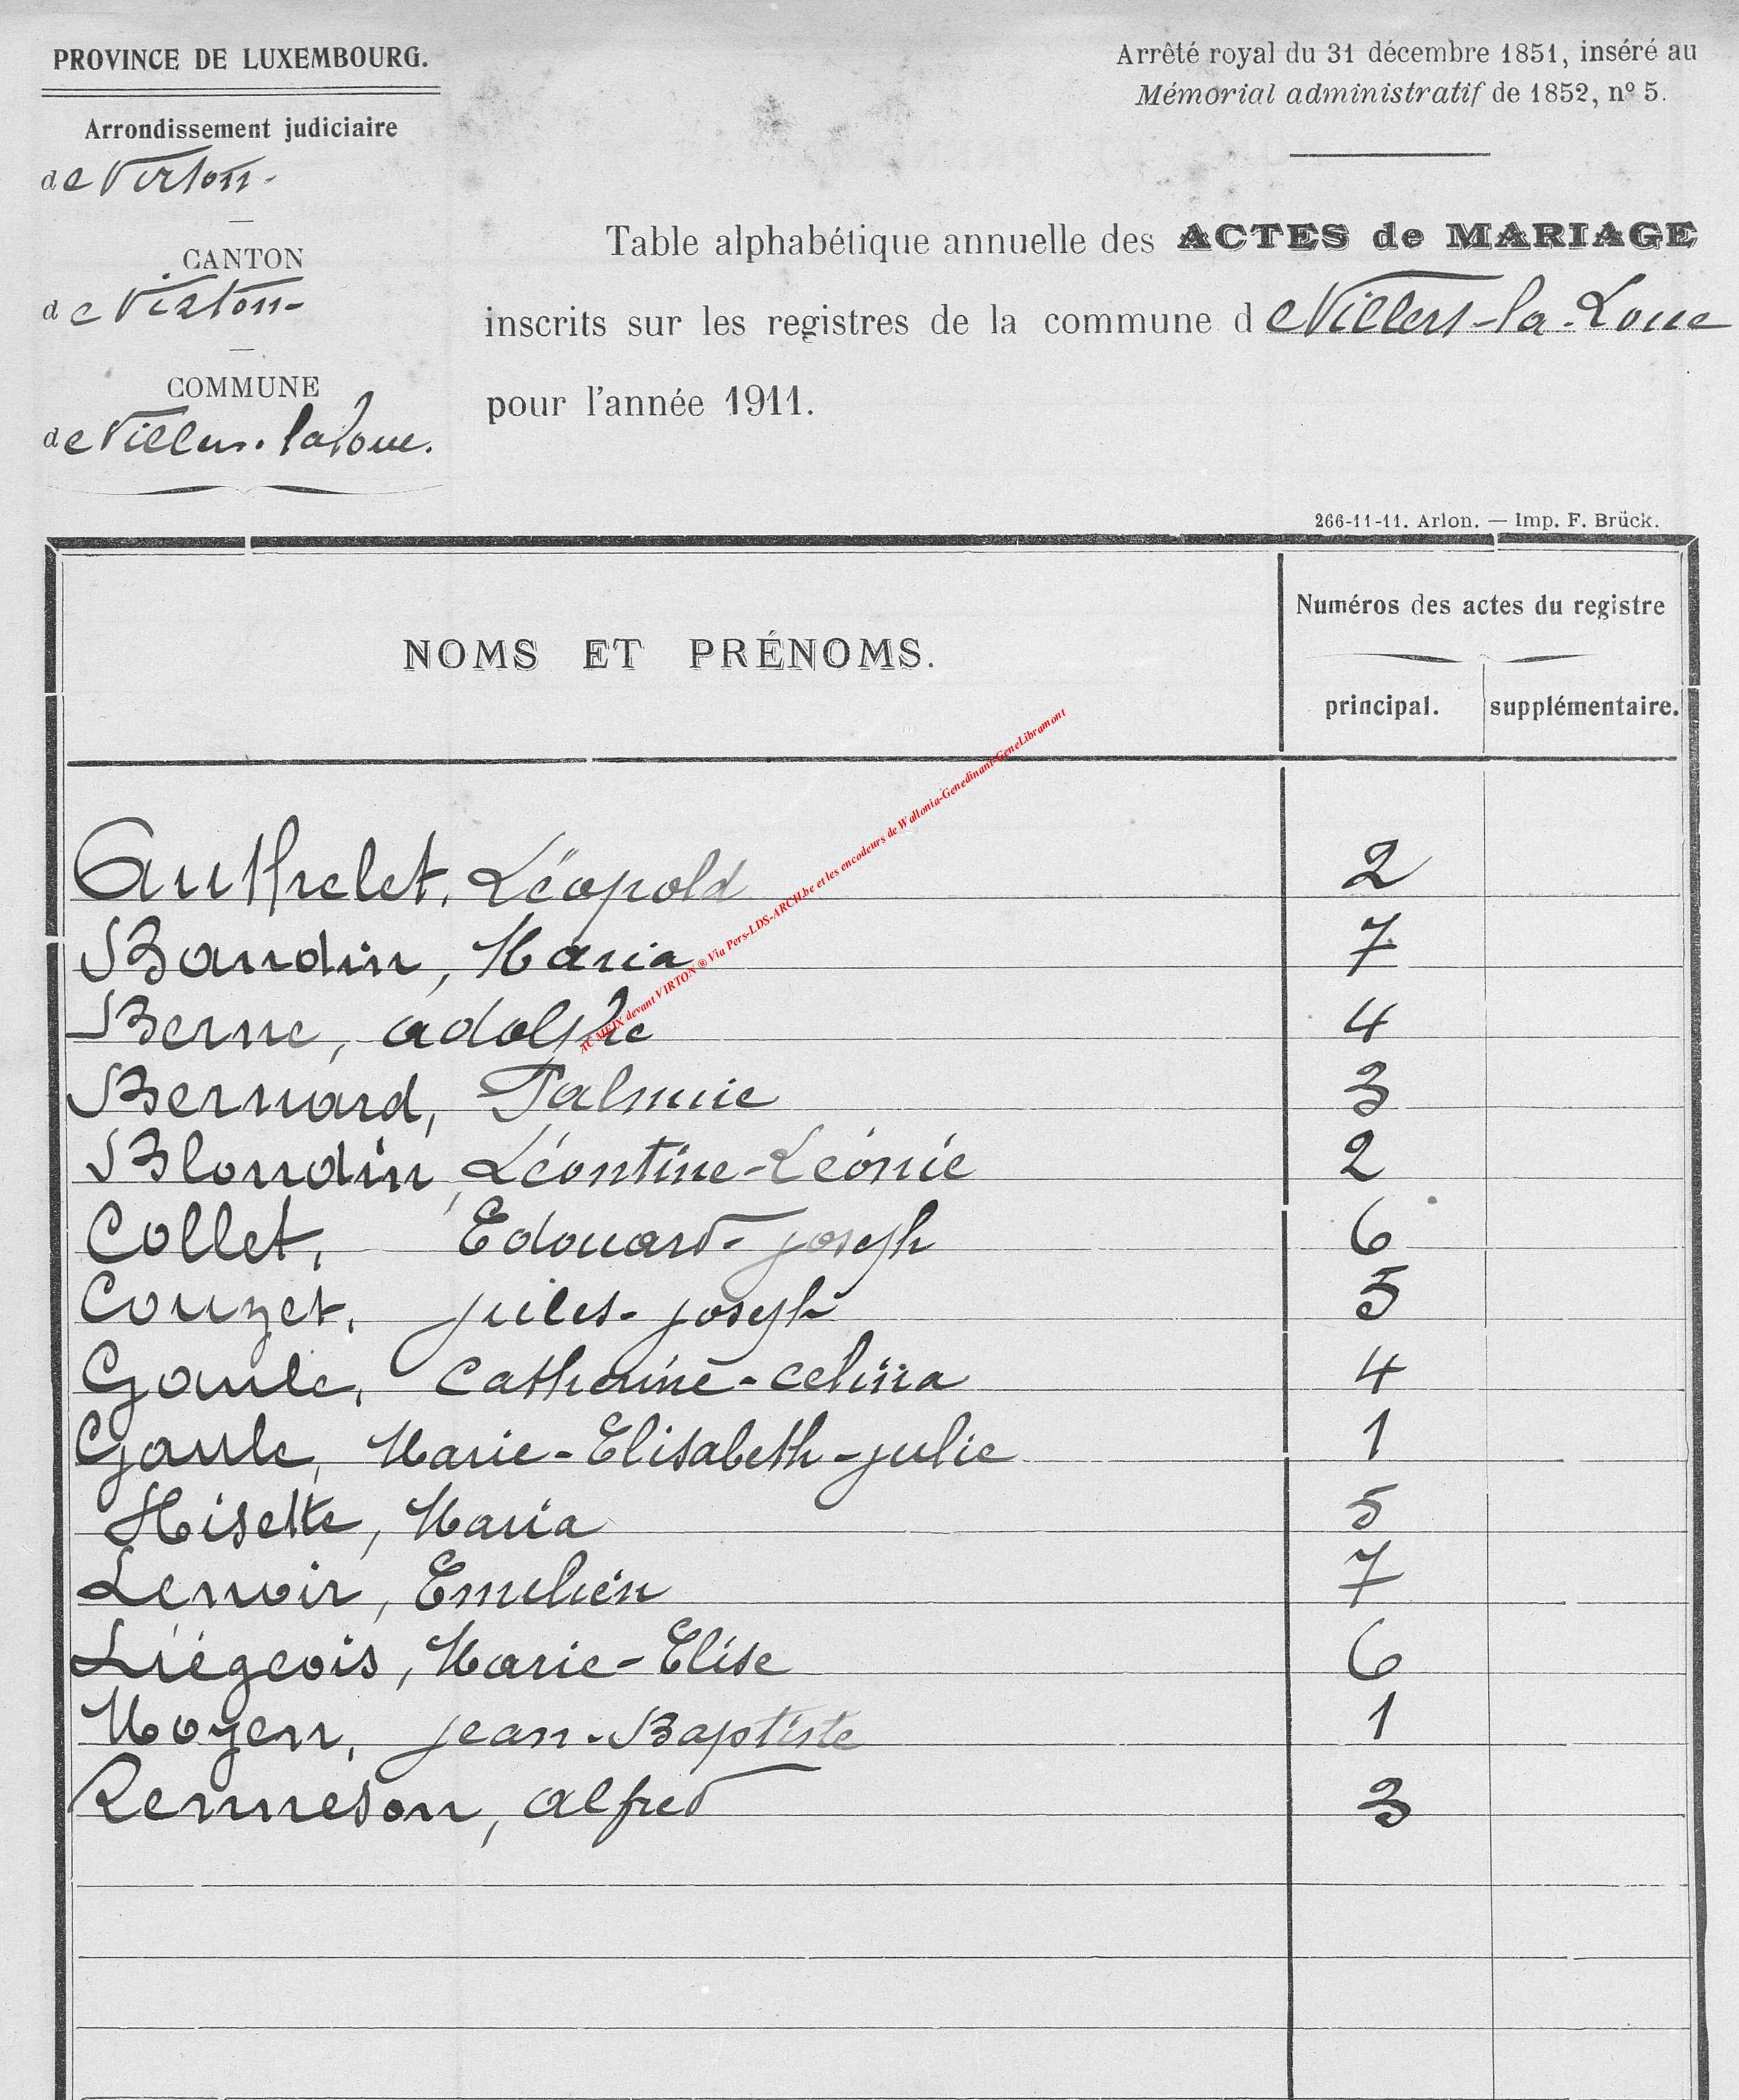 PROVINCE DE LUXEMBOURG.
Arrondissement judiciaire
de Virton-
CANTON
de Virton-
COMMUNE
de Villers-la Loue.
Arrêté royal du 31 décembre 1851, inséré au
Mémorial administratif de 1852, nº 5.
Table alphabétique annuelle des ACTES de MARIAGE
inscrits sur les registres de la commune de Villers-la-Loue
pour l'année 1911.
266-11-11. Arlon. — Imp. F. Brück.
NOMS ET PRÉNOMS.
Numéros des actes du registre
principal. supplémentaire.
Authelet, Léopold 2
Baudin, Maria 7
Berne, adolphe 4
Bernard, Palmire 3
Blondin, Léontine-Léonie 2
Collet, Edouard-joseph 6
Couzet, jules-joseph 5
Gaule, Catherine-celina 4
Gaule, Marie-Elisabeth-julie 1
Hisette, Maria 5
Lenoir, Emilien 7
Liégeois, Marie-Elise 6
Moyen, jean-Baptiste 1
Renneson, alfred 3
AC MEIX devant VIRTON ® Via Pers-LDS-ARCH.be et les encodeurs de Wallonia-Genedinant-GeneLibramont